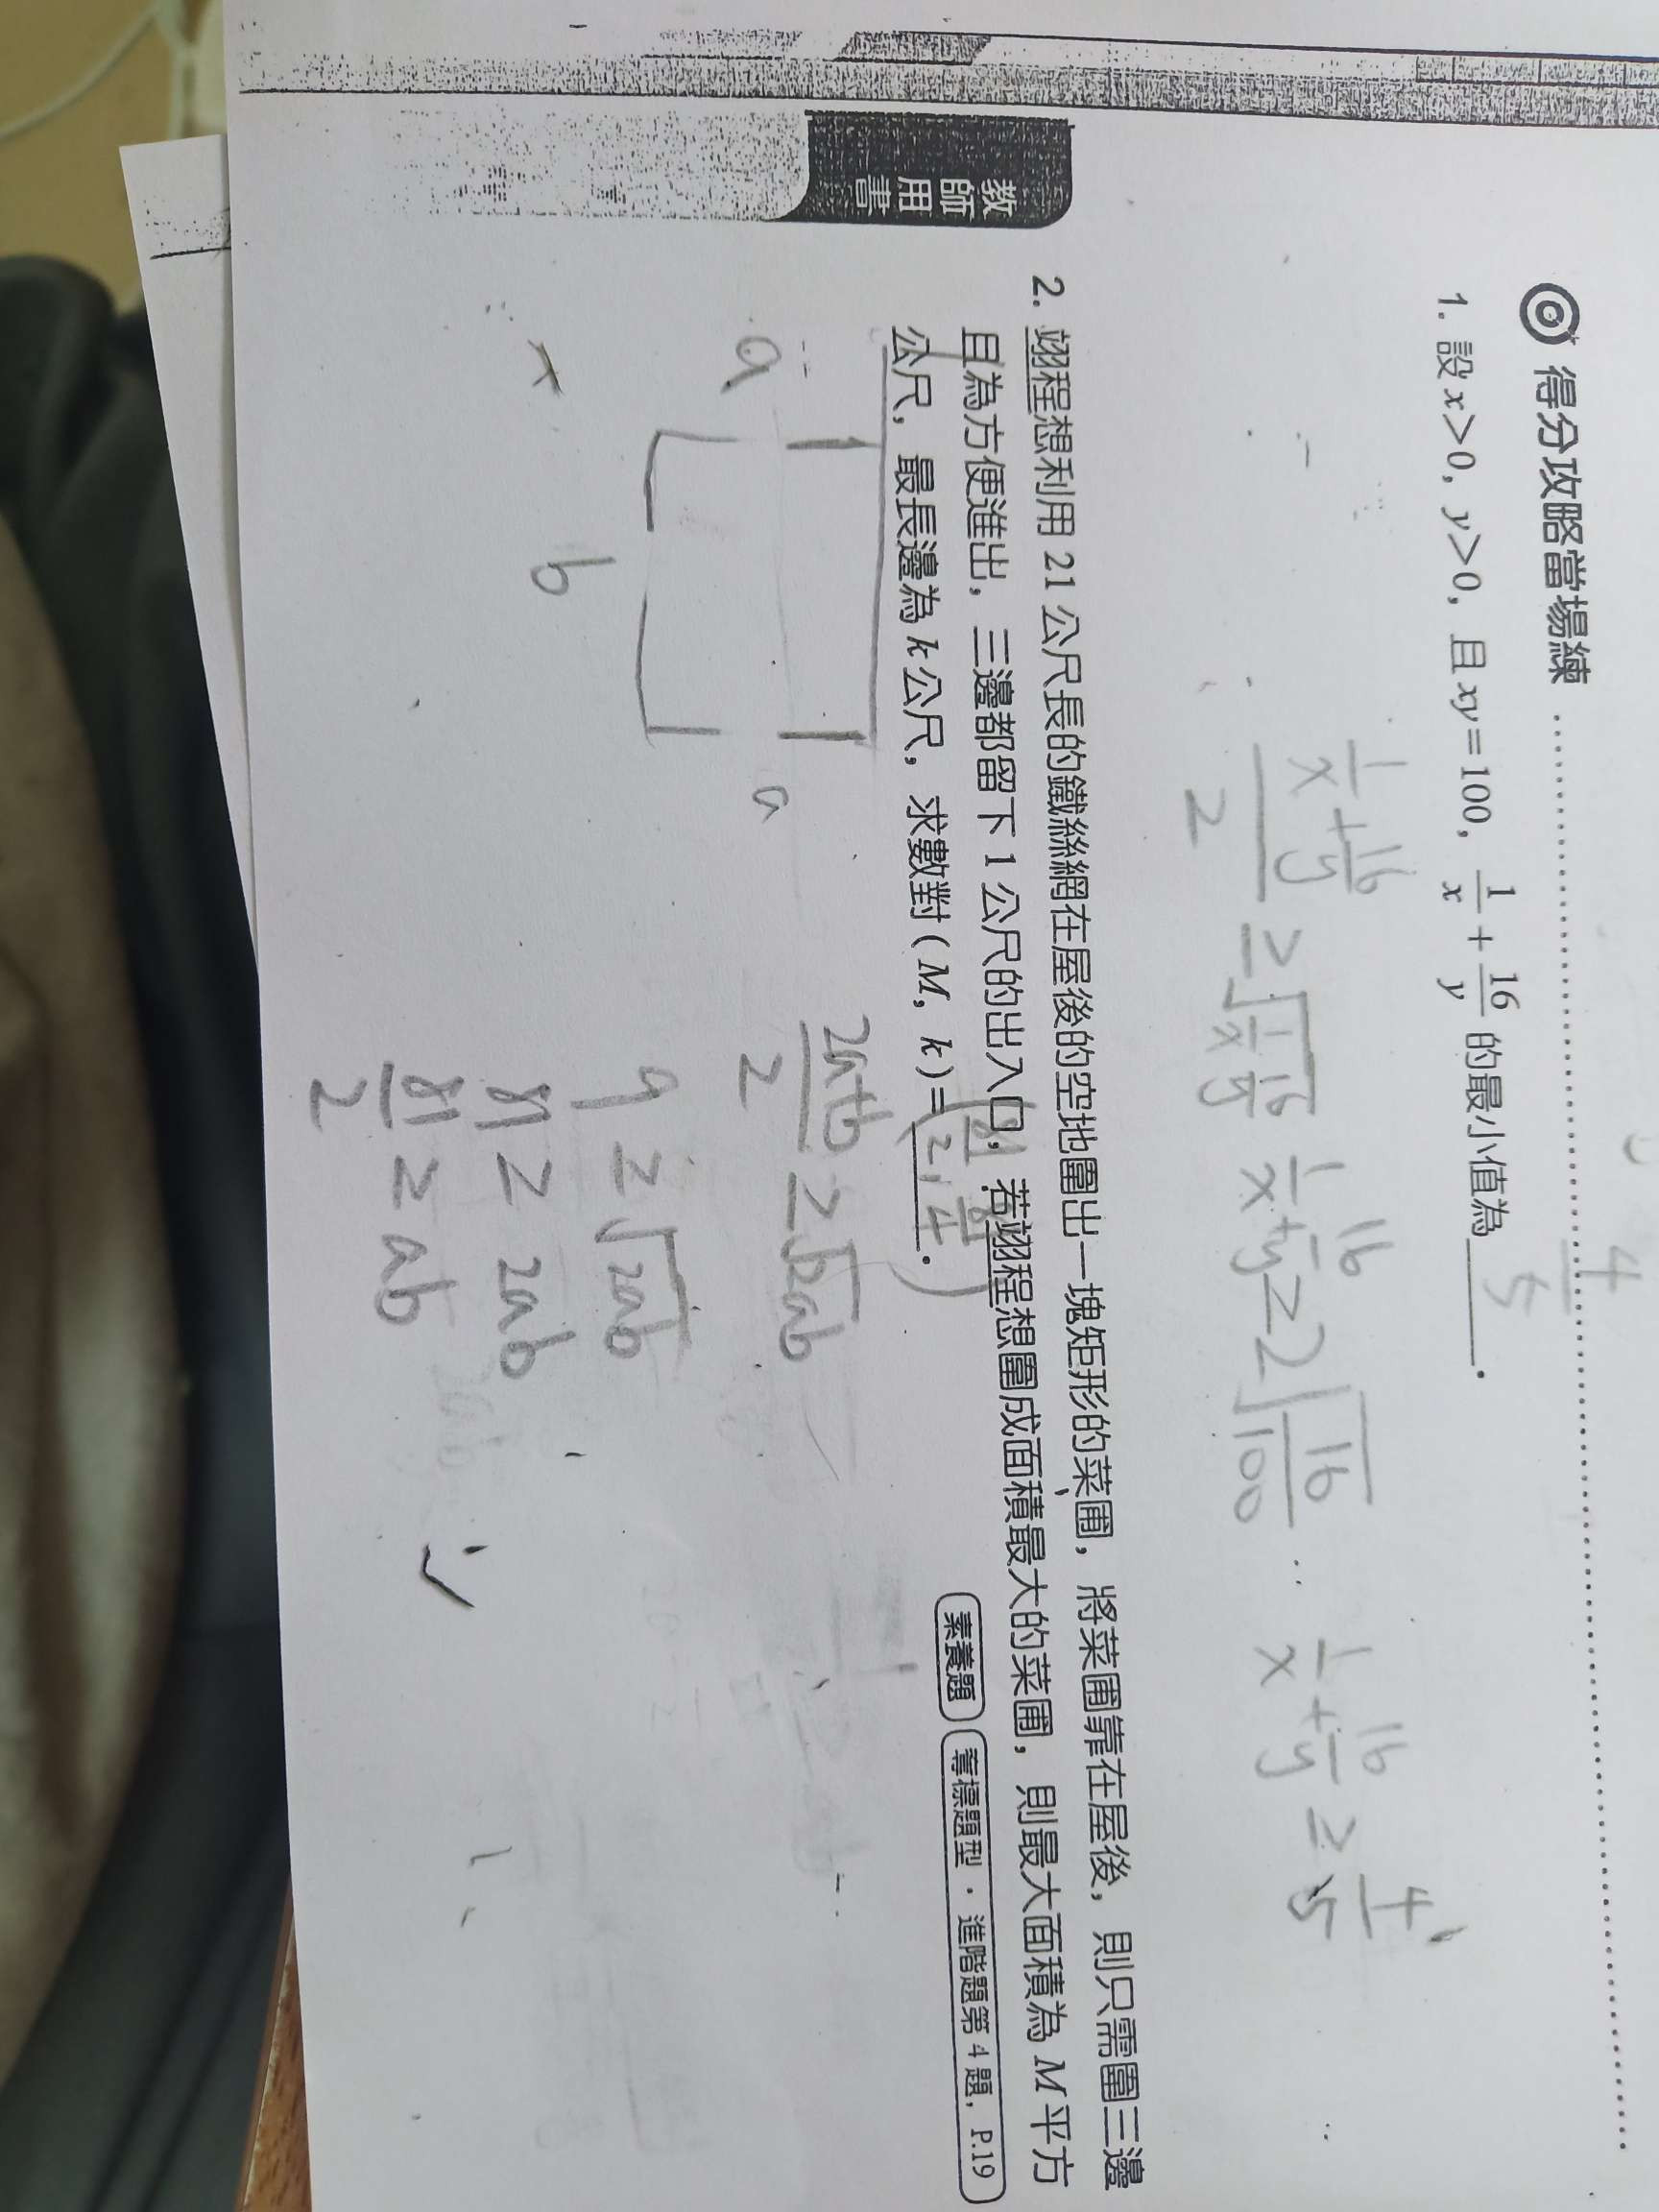 教師用書
得分攻略當場練
4
1. 設 x>0, y>0, 且 xy=100, 1/x + 16/y 的最小值為 5.
(1/x + 16/y)/2 ≥ √(1/x 16/y) 1/x + 16/y ≥ 2√(16/100) 1/x + 16/y ≥ 4/5
2. 翊程想利用 21 公尺長的鐵絲網在屋後的空地圍出一塊矩形的菜圃, 將菜圃靠在屋後, 則只需圍三邊
且為方便進出, 三邊都留下 1 公尺的出入口, 若翊程想圍成面積最大的菜圃, 則最大面積為 M 平方
公尺, 最長邊為 k 公尺, 求數對 (M, k)=
素養題 奪標題型・進階題第 4 題, P.19
a
a
b
(2a+b)/2 ≥ √2ab
9 ≥ √2ab
81 ≥ 2ab
81/2 ≥ ab